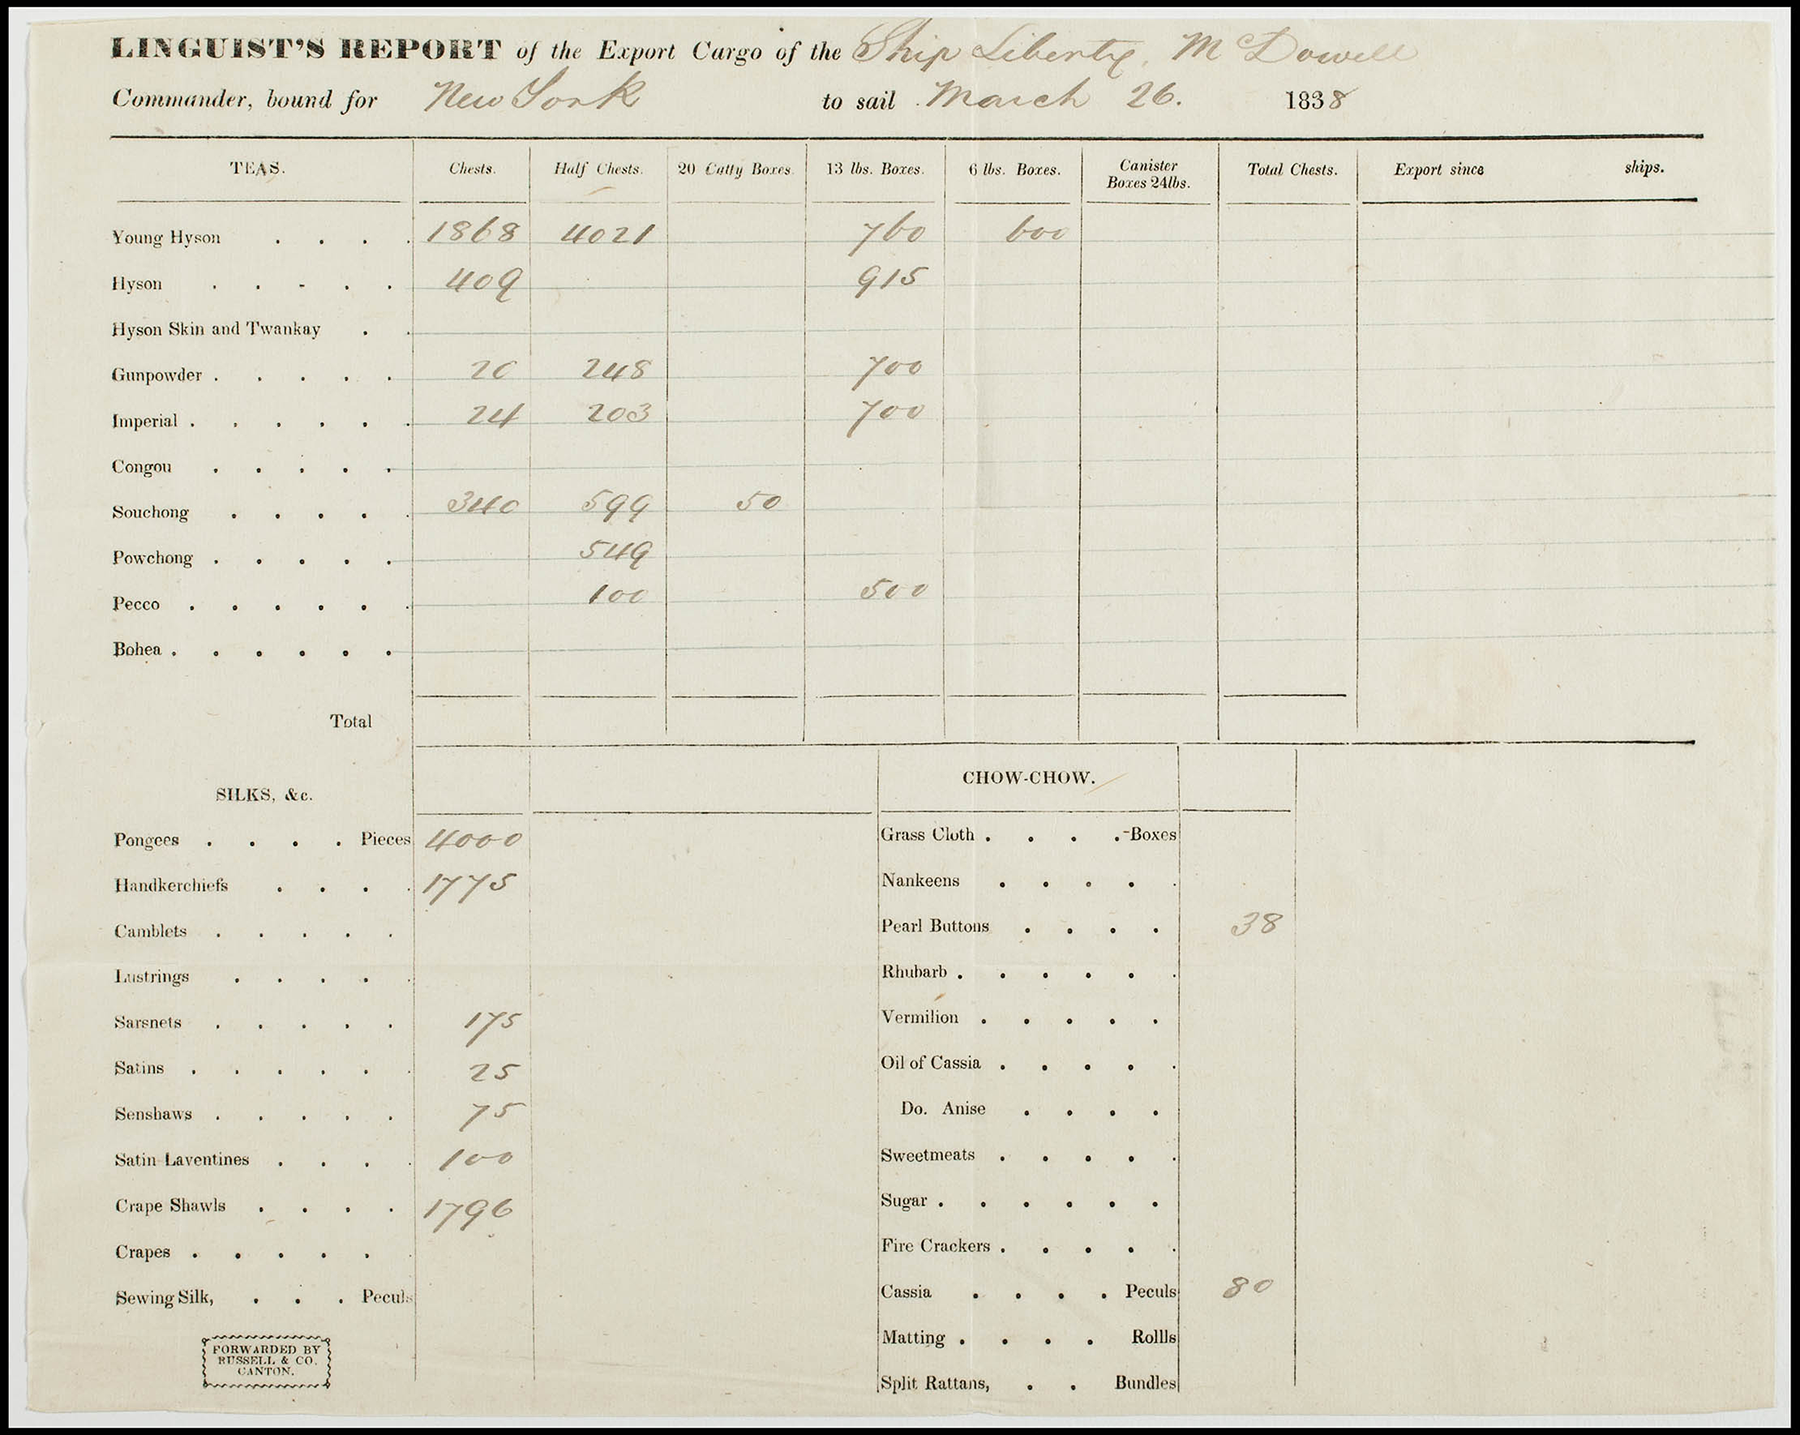 LINGUIST'S REPORT of the Export Cargo of the Ship Liberty, McDowell
Commander, bound for New York to sail March 26. 1838
TEAS. Chests. Half Chests. 20 Catty Boxes. 13 lbs. Boxes. 6 lbs. Boxes. Canister Boxes 24lbs. Total Chests. Export since ships.
Young Hyson . . . . 1868 4021 760 600
Hyson . . - . . 409 915
Hyson Skin and Twankay . .
Gunpowder . . . . . 20 248 700
Imperial . . . . . . 24 203 700
Congou . . . . .
Souchong . . . . . 340 599 50
Powchong . . . . . 549
Pecco . . . . . . 100 500
Bohea . . . . . .
Total
SILKS, &c.
Pongees . . . . Pieces 4000
Handkerchiefs . . . . 1775
Camblets . . . . .
Lustrings . . . . .
Sarsnets . . . . . 175
Satins . . . . . . 25
Senshaws . . . . . 75
Satin Laventines . . . . 100
Crape Shawls . . . . 1796
Crapes . . . . . .
Sewing Silk, . . . Peculs
CHOW-CHOW.
Grass Cloth . . . . -Boxes
Nankeens . . . . .
Pearl Buttons . . . . 38
Rhubarb . . . . . .
Vermilion . . . . .
Oil of Cassia . . . . .
Do. Anise . . . .
Sweetmeats . . . . .
Sugar . . . . . .
Fire Crackers . . . . .
Cassia . . . . Peculs 80
Matting . . . . Rollls
Split Rattans, . . Bundles
FORWARDED BY
RUSSELL & CO.
CANTON.